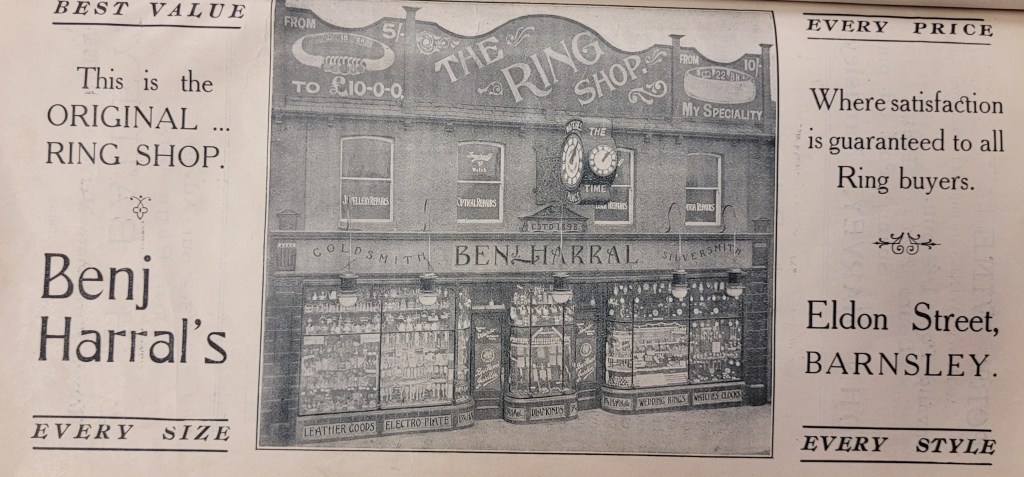 BEST VALUE
This is the
ORIGINAL ...
RING SHOP.
Benj
Harral's
EVERY SIZE
FROM 5/-
TO £10-0-0.
THE
RING
SHOP.
FROM 10/-
22
MY SPECIALITY
THE
TIME
JEWELLERY REPAIRS
OPTICAL REPAIRS
REPAIRS
ESTD 1898
GOLDSMITH
BENJ. HARRAL
SILVERSMITH
LEATHER GOODS
ELECTRO-PLATE
DIAMONDS
WEDDING RINGS
WATCHES & CLOCKS
EVERY PRICE
Where satisfaction
is guaranteed to all
Ring buyers.
Eldon Street,
BARNSLEY.
EVERY STYLE